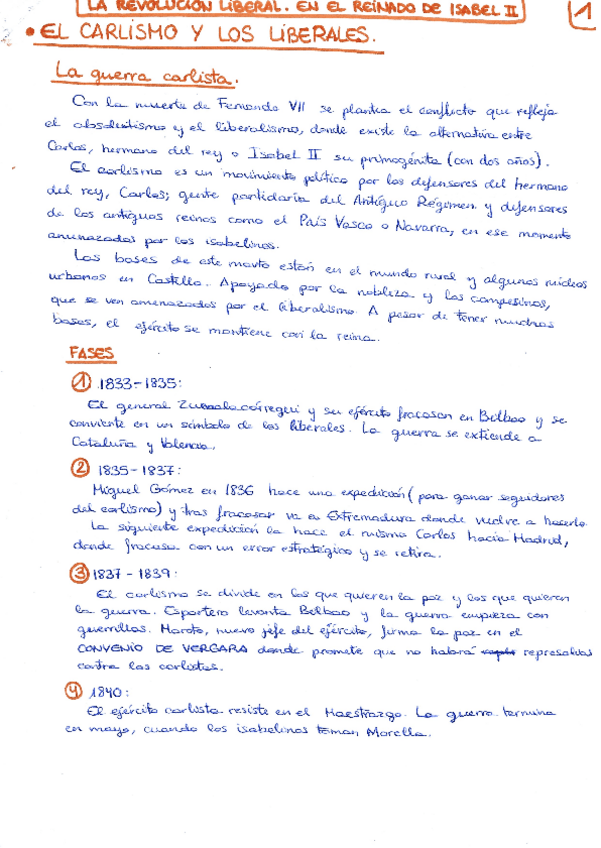 LA REVOLUCIÓN LIBERAL. EN EL REINADO DE ISABEL II
1
• EL CARLISMO Y LOS LIBERALES.
La guerra carlista.
Con la muerte de Fernando VII se plantea el conflicto que refleja
el absolutismo y el liberalismo, donde existe la alternativa entre
Carlos, hermano del rey o Isabel II su primogénita (con dos años).
El carlismo es un movimiento político por los defensores del hermano
del rey, Carlos; gente partidaria del Antiguo Régimen y defensores
de los antiguos reinos como el País Vasco o Navarra, en ese momento
amenazados por los isabelinos.
Las bases de este movto están en el mundo rural y algunos núcleos
urbanos en Castilla. Apoyado por la nobleza y los campesinos,
que se ven amenazados por el liberalismo. A pesar de tener muchas
bases, el ejército se mantiene con la reina.
FASES
1 1833-1835:
El general Zumalacárregui y su ejército fracasan en Bilbao y se
convierte en un símbolo de los liberales. La guerra se extiende a
Cataluña y Valencia.
2 1835-1837:
Miguel Gómez en 1836 hace una expedición (para ganar seguidores
del carlismo) y tras fracasar va a Extremadura donde vuelve a hacerlo.
La siguiente expedición la hace el mismo Carlos hacia Madrid,
donde fracasa con un error estratégico y se retira.
3 1837-1839:
El carlismo se divide en los que quieren la paz y los que quieren
la guerra. Espartero levanta Bilbao y la guerra empieza con
guerrillas. Maroto, nuevo jefe del ejército, firma la paz en el
CONVENIO DE VERGARA donde promete que no habrá represalias
contra los carlistas.
4 1840:
El ejército carlista resiste en el Maestrazgo. La guerra termina
en mayo, cuando los isabelinos toman Morella.